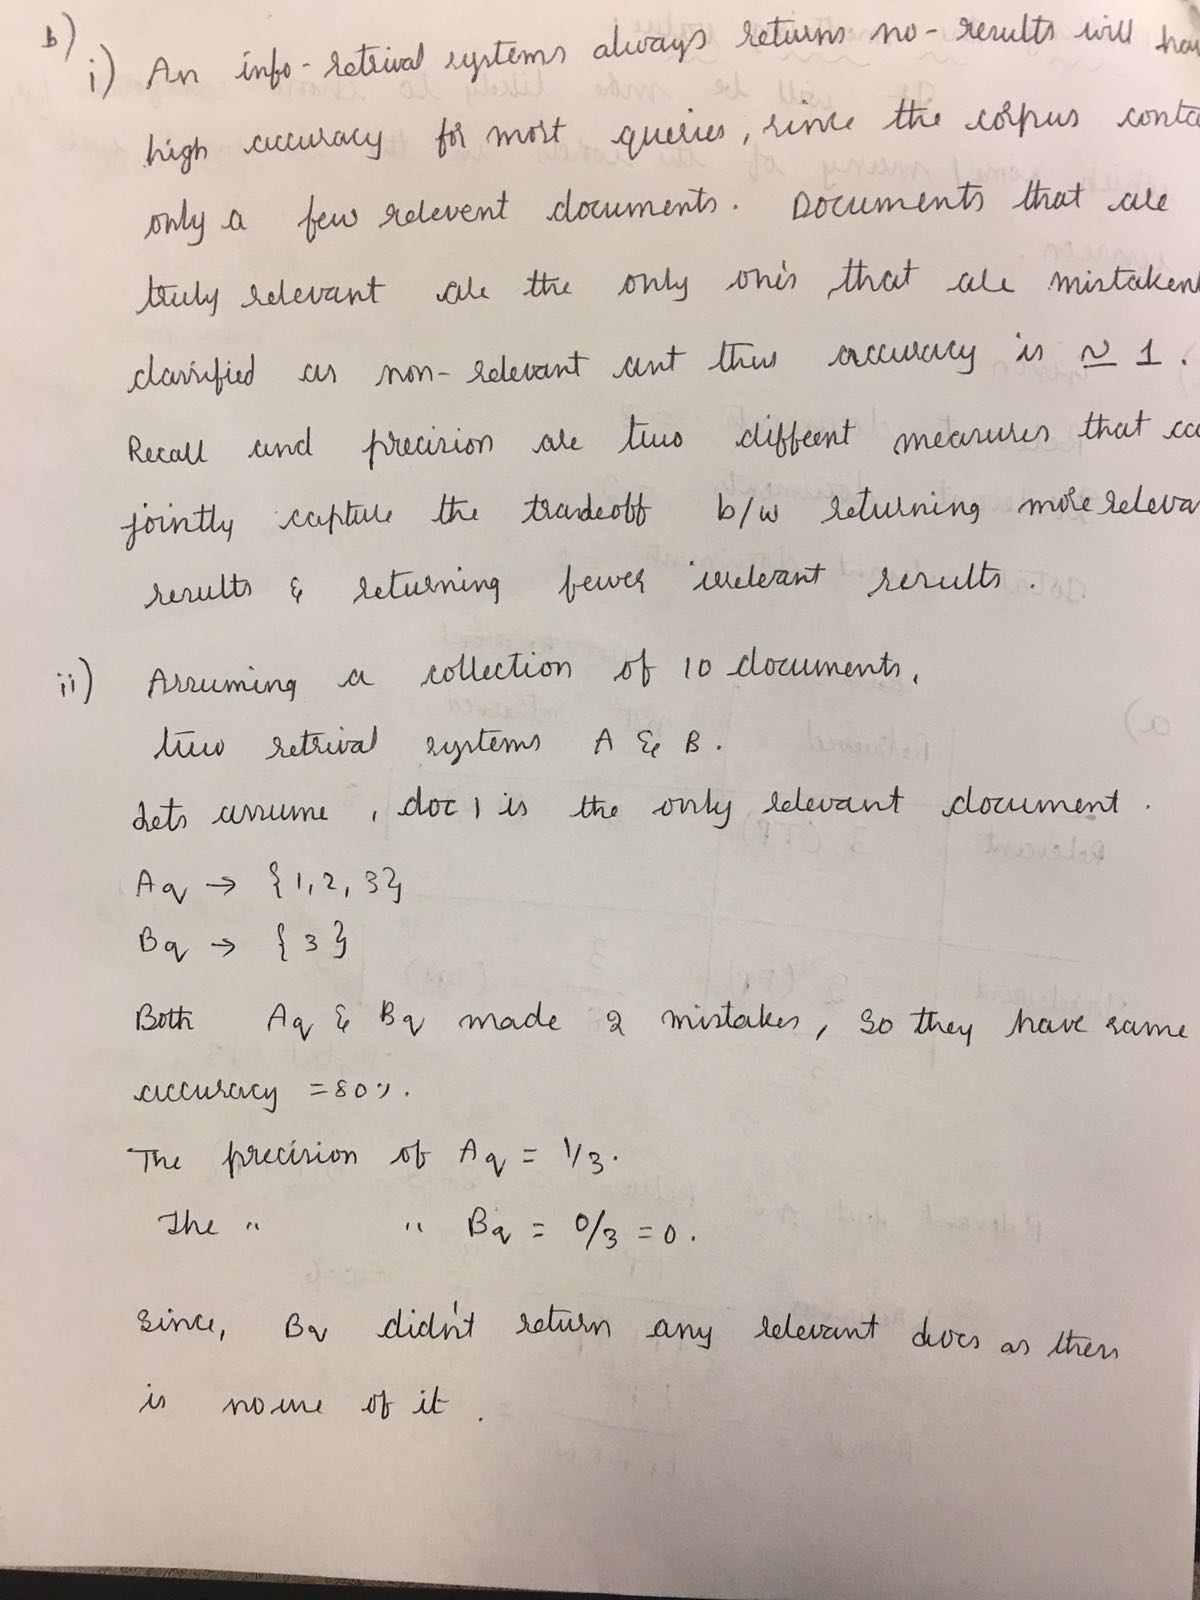 b)
i) An info-retrival systems always returns no-results will hav
high accuracy for most queries, since the corpus conta
only a few relevent documents. Documents that are
truly relevant are the only one's that are mistaken
classified as non-relevant ant thus accuracy is ≃ 1.
Recall and precision are two diffeent measures that ca
jointly capture the tradeoff b/w returning more releva
results & returning fewer irrelevant results.
ii) Assuming a collection of 10 documents,
two retrival systems A & B.
Lets assume, doc 1 is the only relevant document.
Aq → {1, 2, 3}
Bq → {3}
Both Aq & Bq made 2 mistakes, so they have same
accuracy = 80%.
The precision of Aq = 1/3.
The " " Bq = 0/3 = 0.
Since, Bq didn't return any relevant docs as there
is none of it.